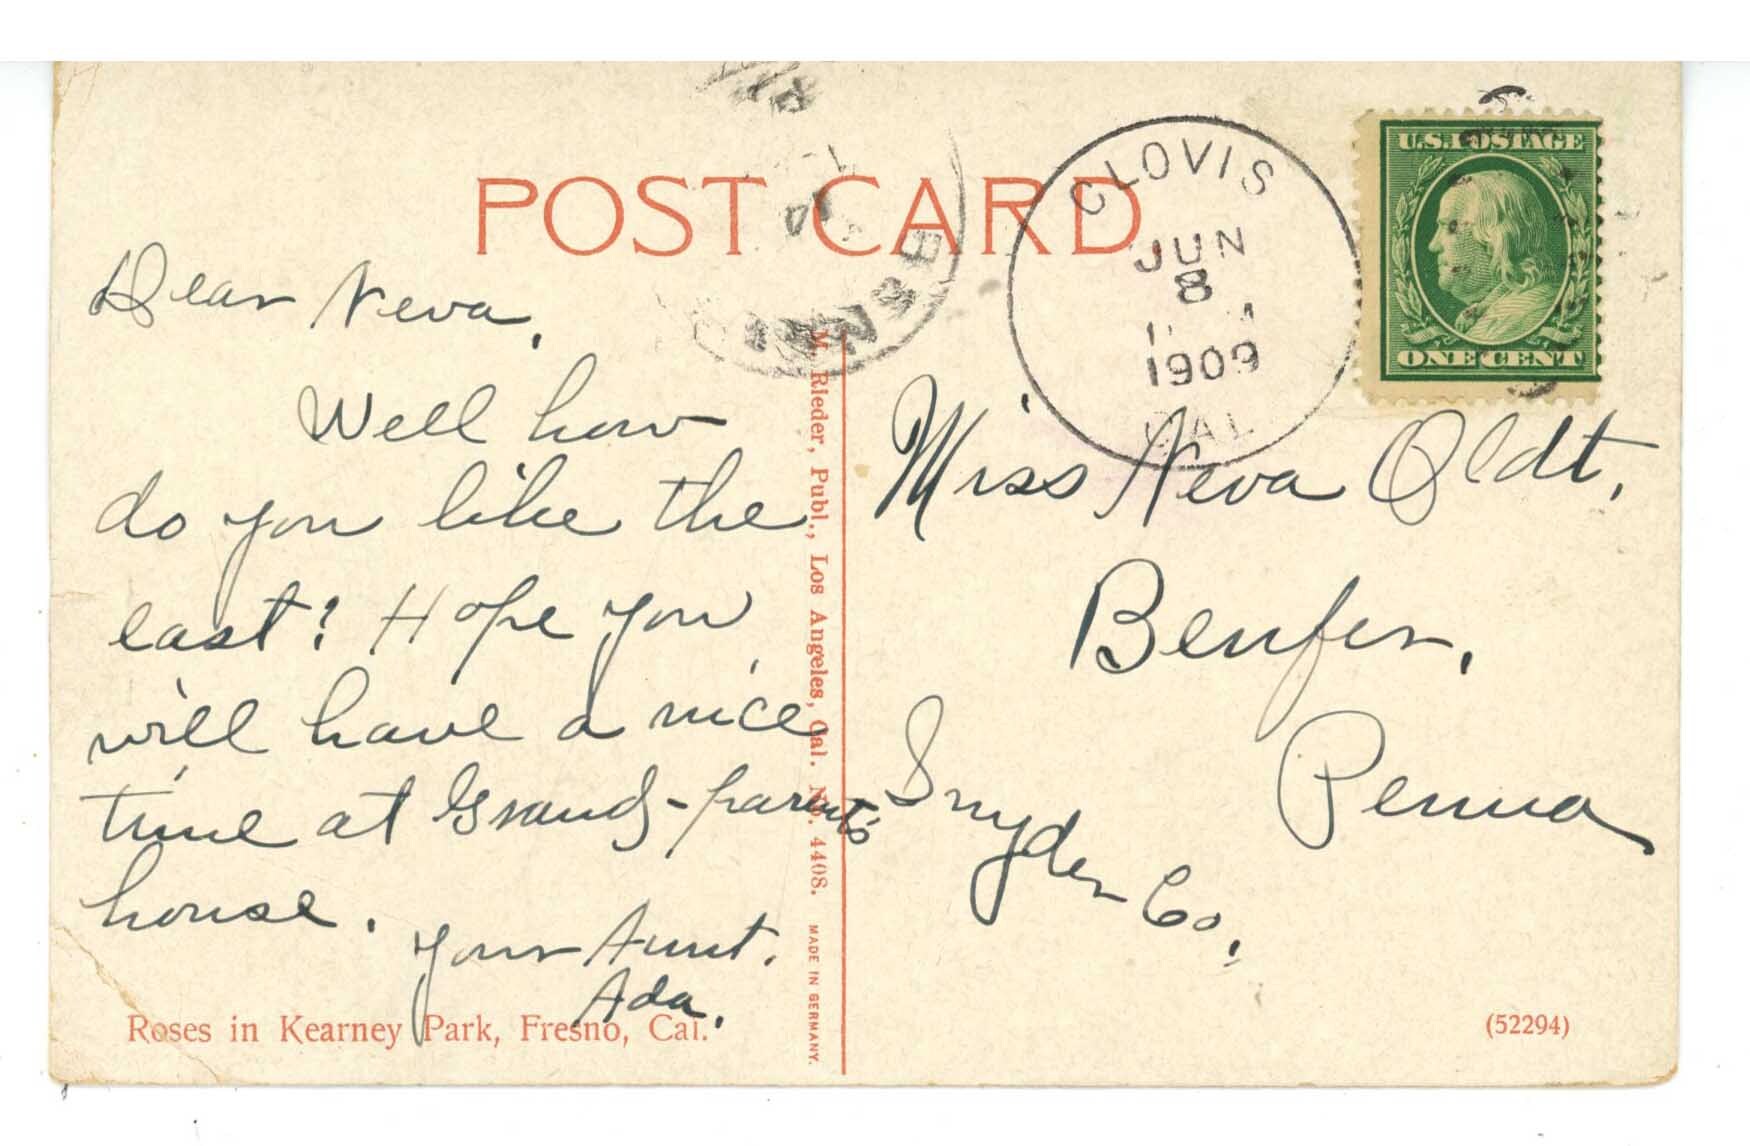 POST CARD
CLOVIS
JUN
8
1909
CAL
U.S. POSTAGE
ONE CENT
Dear Neva,
Well how
do you like the
east? Hope you
will have a nice
time at Grand-parents
house.
Your Aunt.
Ada.
Miss Neva Oldt,
Benfer,
Snyder Co,
Penna
M. Rieder, Publ., Los Angeles, Cal. No. 4408. MADE IN GERMANY.
Roses in Kearney Park, Fresno, Cal.
(52294)